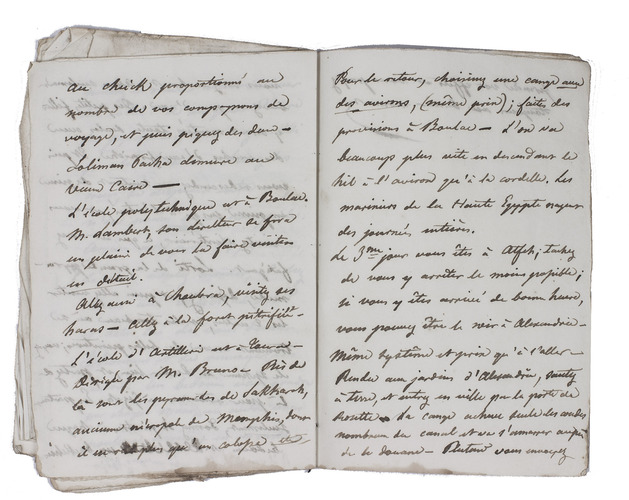 au cheick proportionné au
nombre de vos compagnons de
voyage, et puis piquez des deux —
Soliman Pacha demeure au
vieux Caire —
L'école polytechnique est à Boulac.
M. Lambert, son directeur se fera
un plaisir de vous la faire visiter
en détail.
Allez aussi à Choubra, visitez ses
haras — Allez à la forêt pétrifiée —
L'école d'Artillerie est à Toura —
dirigée par M. Bruno — Près de
là sont les pyramides de Sakkarah,
ancienne nécropole de Memphis, dont
il ne reste plus qu'un colosse
Pour le retour, choisissez une cange aux
des avirons, (même prix); faites des
provisions à Boulac — L'on va
beaucoup plus vite en descendant le
Nil à l'aviron qu'à la cordelle. Les
mariniers de la Haute Egypte nagent
des journées entières.
Le 3me jour vous êtes à Atfeh; tachez
de vous y arrêter le moins possible;
si vous y êtes arrivé de bonne heure,
vous pouvez être le soir à Alexandrie —
Même système et prix qu'à l'aller —
Rendu aux jardins d'Alexandrie, sautez
à terre, et entrez en ville par la porte de
Rosette — La cange achève seule les
nombreux du canal et va s'amarrer auprès
de la douane — Plutard vous envoyez